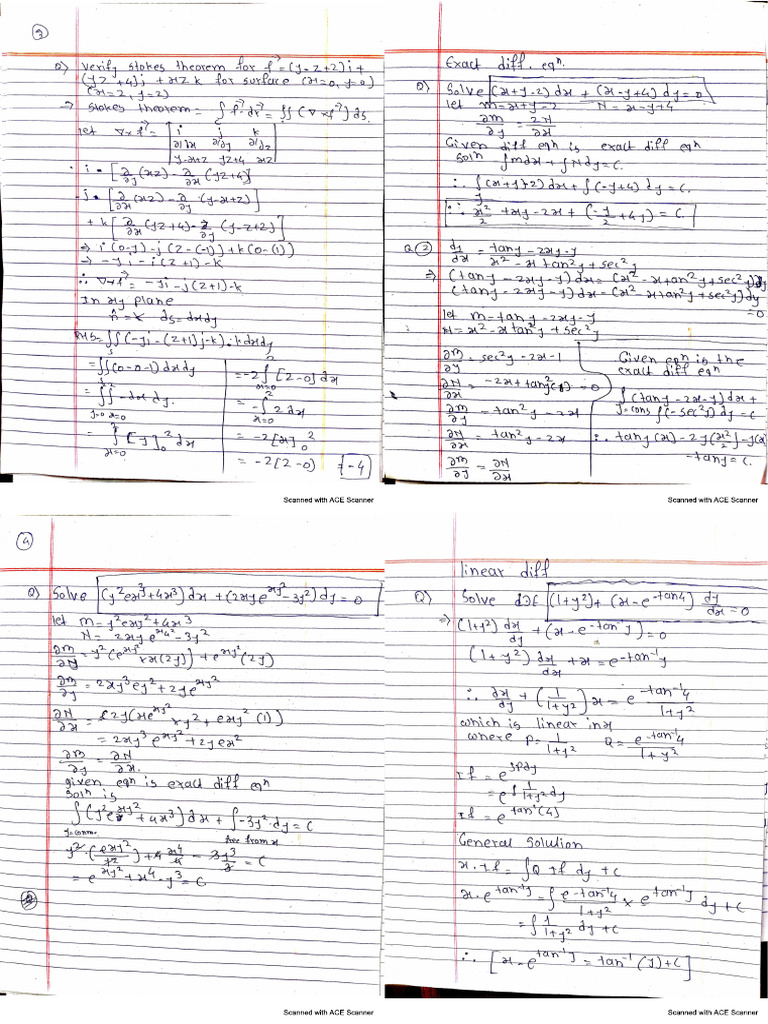 3
Q) Verify stokes theorem for f = (y-z+2)i +
(yz+4)j + xz k for surface (x=0, y=0)
(x=2, y=2)
→ stokes theorem = ∫ f · dr = ∬ (∇×f) ds.
let ∇×f = | i j k
∂/∂x ∂/∂y ∂/∂z
y-x+z yz+4 xz |
∴ i = [∂/∂y (xz) - ∂/∂z (yz+4)]
-j = [∂/∂x (xz) - ∂/∂z (y-x+2)]
+ k [∂/∂x (yz+4) - ∂/∂y (y-z+2)]
⇒ i(0-y) - j(z-(-1)) + k(0-(1))
⇒ -yi - j(z+1) - k
∴ ∇×f = -yi - j(z+1) - k
In xy plane
n̂ = k ds = dxdy
RHS = ∬ (-yi - (z+1)j - k) · k dxdy
= ∬ (0-0-1) dxdy
= ∫ ∫ -dx dy.
y=0 x=0
= ∫ [y]₀² dx
x=0
= -2 ∫ [2-0] dx
x=0
= - ∫ 2 dx
x=0
= -2[x]₀²
= -2(2-0) = -4
Scanned with ACE Scanner
Exact diff. eqn.
Q) Solve (x+y-2) dx + (x-y+4) dy = 0
let m = x+y-2 N = x-y+4
∂m/∂y = ∂N/∂x
Given diff eqn is exact diff eqn
Soln ∫mdx + ∫Ndy = C.
∴ ∫(x+y-2) dx + ∫(-y+4) dy = C.
∴ x²/2 + xy - 2x + (-y/2 + 4y) = C.
Q(2) dy/dx = tany-2xy-y / x²-x tan²y + sec²y
⇒ (tany-2xy-y) dx = (x²-xtan²y+sec²y) dy
(tany-2xy-y) dx = (x²-xtan²y+sec²y) dy
= 0
let m = tany-2xy-y
N = x²-xtan²y + sec²y
∂m/∂y = sec²y - 2x - 1
∂N/∂x = -2x + tan²y(1) = 0
∂m/∂y = tan²y - 2x
∂N/∂x = tan²y - 2x
∂m/∂y = ∂N/∂x
Given eqn is the
exact diff eqn
∫(tany-2x-y) dx +
y=cons ∫(-sec²y) dy = C
∴ tany(x) - 2y(x²/2) - y(x)
- tany = C.
Scanned with ACE Scanner
4
Q) Solve (y²ex³+4x³) dx + (2xye^xy²-3y²) dy = 0
let m = y²exy²+4x³
N = 2xye^xy² - 3y²
∂m/∂y = y²(e^xy² xx(2y)) + e^xy²(2y)
∂m/∂y = 2xy³ey² + 2ye^xy²
∂N/∂x = 2y(xe^xy² xy² + exy²(1))
= 2xy³e^xy² + 2yex²
∂m/∂y = ∂N/∂x.
given eqn is exact diff eqn
Soln is
∫(y²e^xy² + 4x³) dx + ∫-3y² dy = C
y=conn. free from x
y²·(exy²/y²) + 4 x⁴/4 - 3y³/3 = C
= e^xy² + x⁴ - y³ = C
Scanned with ACE Scanner
linear diff
Q) Solve DE (1+y²) + (x-e^-tan4) dy/dx = 0
⇒ (1+y²) dx/dy + (x-e^-tan⁻¹y) = 0
(1+y²) dx/dx + x = e^-tan⁻¹y
∴ dx/dy + (1/1+y²) x = e^-tan⁻¹4/1+y²
which is linear in x
where P = 1/1+y² Q = e^-tan⁻¹4/1+y²
If = e^∫Pdy
= e^∫1/1+y² dy
If = e^tan⁻¹(4)
General Solution
x·If = ∫Q·If dy + C
x·e^tan⁻¹y = ∫ e^-tan⁻¹4/1+y² × e^tan⁻¹y dy + C
= ∫ 1/1+y² dy + C
∴ [x-e^tan⁻¹y = tan⁻¹(y)+C]
Scanned with ACE Scanner